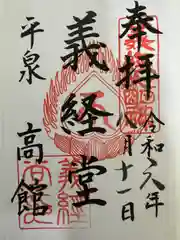 奉拝
令和元年
八月十一日
義経堂
平泉
高館
義経